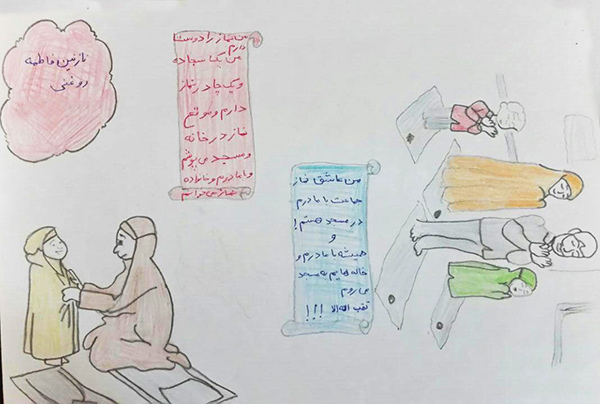 نازنین فاطمه
روغنی
من نماز را دوست
دارم
من یک سجاده
و یک چادر نماز
دارم و موقع
نماز در خانه
و مسجد می پوشم
و با مادرم و خانواده
نماز می خوانم
من عاشق نماز
جماعت با مادرم
در مسجد هستم!
و
همیشه با مادرم و
خاله هایم به مسجد
می روم
تقبل الله !!!